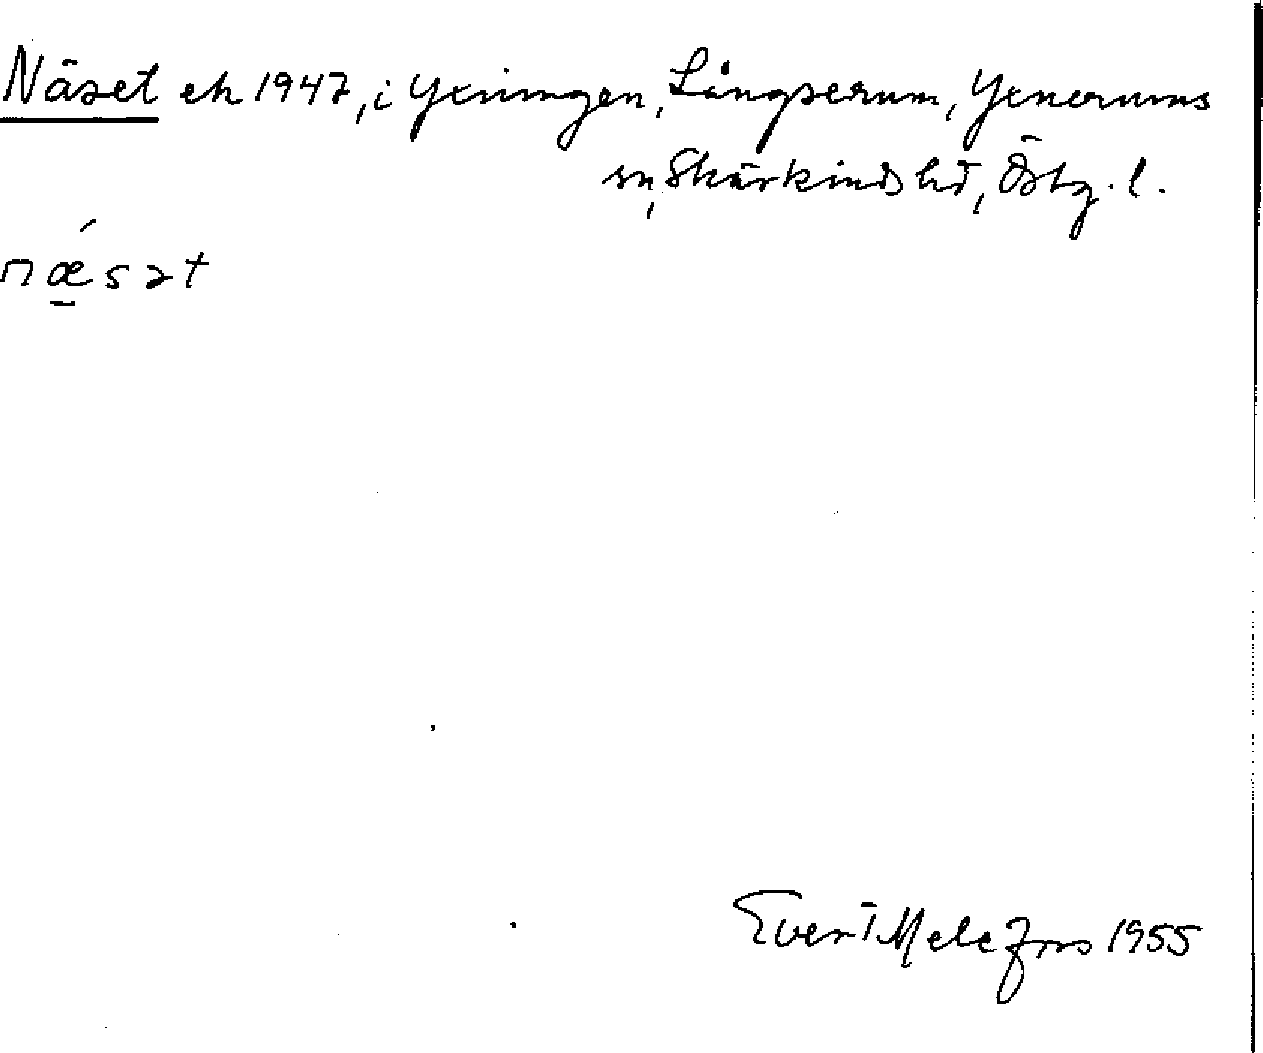 Näset ek 1947, i Yxningen, Långserum, Yxnerums
sn, Skärkinds hd, Östg. l.
nǽ̱sət
Evert Melefors 1955